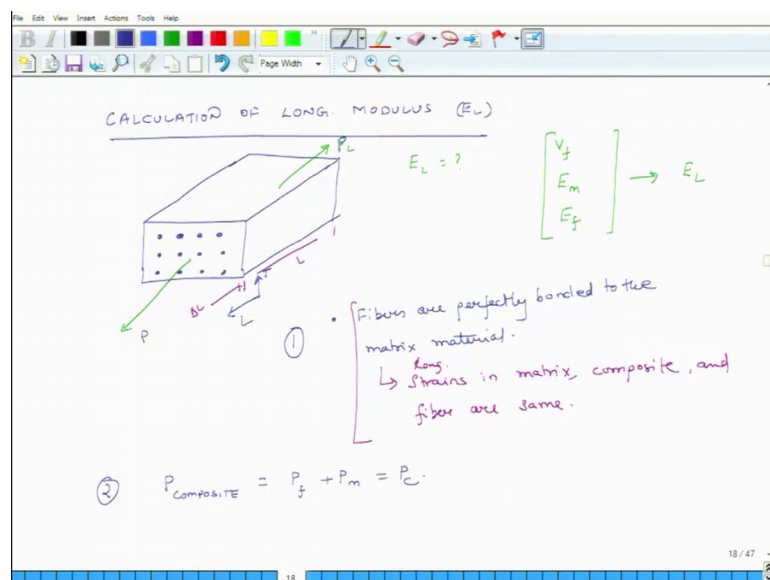 File Edit View Insert Actions Tools Help
B I
Page Width
CALCULATION OF LONG. MODULUS (EL)
PL
EL = ?
Vf
Em
Ef
→ EL
L
ΔL
T
L
P
① • Fibers are perfectly bonded to the
matrix material.
Long.
↳ Strains in matrix, composite, and
fiber are same.
② P COMPOSITE = Pf + Pm = Pc.
18 / 47
18